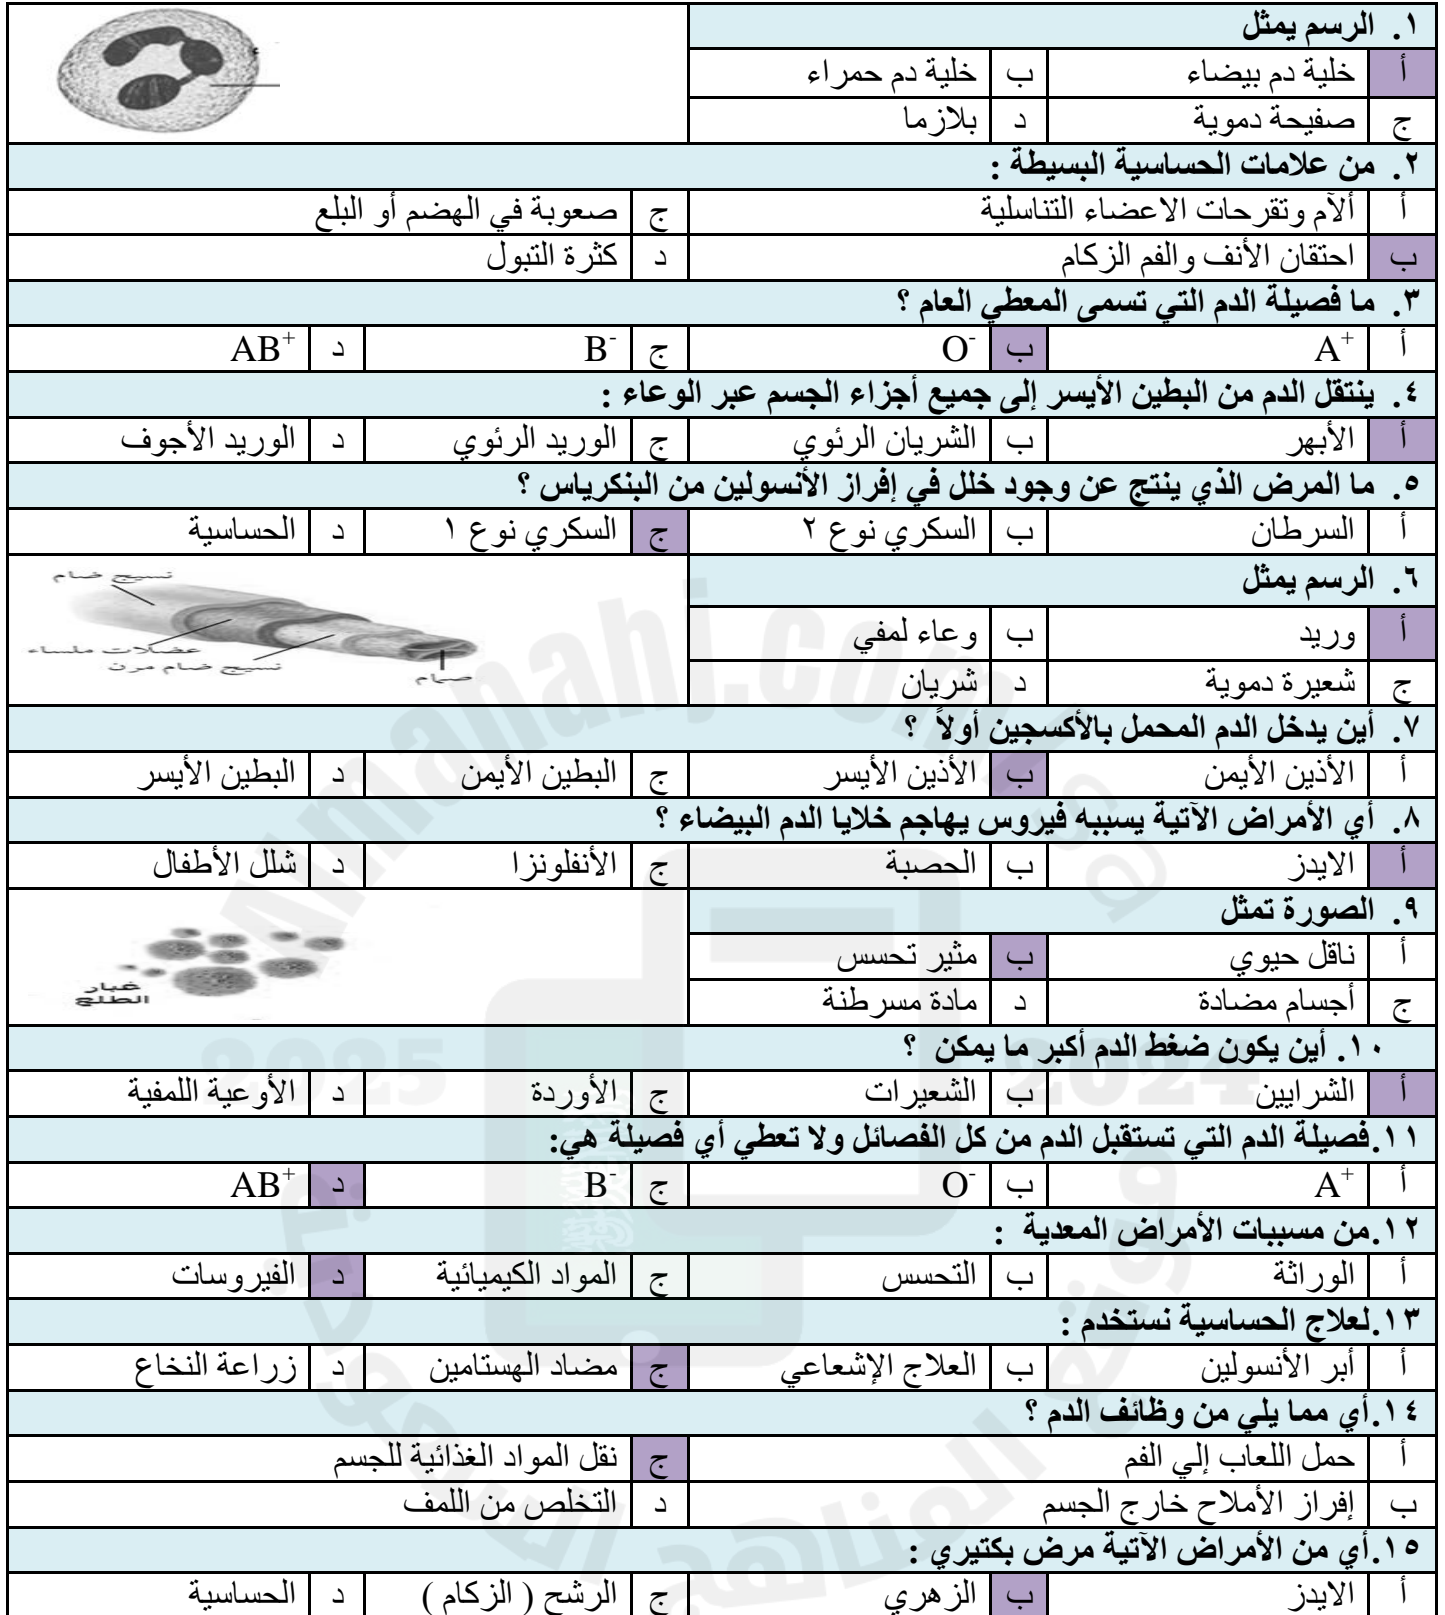 ١. الرسم يمثل
أ خلية دم بيضاء ب خلية دم حمراء
ج صفيحة دموية د بلازما
٢. من علامات الحساسية البسيطة :
أ ألآم وتقرحات الاعضاء التناسلية ج صعوبة في الهضم أو البلع
ب احتقان الأنف والفم الزكام د كثرة التبول
٣. ما فصيلة الدم التي تسمى المعطي العام ؟
أ A⁺ ب O⁻ ج B⁻ د AB⁺
٤. ينتقل الدم من البطين الأيسر إلى جميع أجزاء الجسم عبر الوعاء :
أ الأبهر ب الشريان الرئوي ج الوريد الرئوي د الوريد الأجوف
٥. ما المرض الذي ينتج عن وجود خلل في إفراز الأنسولين من البنكرياس ؟
أ السرطان ب السكري نوع ٢ ج السكري نوع ١ د الحساسية
٦. الرسم يمثل
أ وريد ب وعاء لمفي
ج شعيرة دموية د شريان
نسيج ضام
عضلات ملساء
نسيج ضام مرن
صمام
٧. أين يدخل الدم المحمل بالأكسجين أولاً ؟
أ الأذين الأيمن ب الأذين الأيسر ج البطين الأيمن د البطين الأيسر
٨. أي الأمراض الآتية يسببه فيروس يهاجم خلايا الدم البيضاء ؟
أ الايدز ب الحصبة ج الأنفلونزا د شلل الأطفال
٩. الصورة تمثل
أ ناقل حيوي ب مثير تحسس
ج أجسام مضادة د مادة مسرطنة
غبار
الطلع
١٠. أين يكون ضغط الدم أكبر ما يمكن ؟
أ الشرايين ب الشعيرات ج الأوردة د الأوعية اللمفية
١١.فصيلة الدم التي تستقبل الدم من كل الفصائل ولا تعطي أي فصيلة هي:
أ A⁺ ب O⁻ ج B⁻ د AB⁺
١٢.من مسببات الأمراض المعدية :
أ الوراثة ب التحسس ج المواد الكيميائية د الفيروسات
١٣.لعلاج الحساسية نستخدم :
أ أبر الأنسولين ب العلاج الإشعاعي ج مضاد الهستامين د زراعة النخاع
١٤.أي مما يلي من وظائف الدم ؟
أ حمل اللعاب إلي الفم ج نقل المواد الغذائية للجسم
ب إفراز الأملاح خارج الجسم د التخلص من اللمف
١٥.أي من الأمراض الآتية مرض بكتيري :
أ الايدز ب الزهري ج الرشح ( الزكام ) د الحساسية
Almanahj.com/sa
2025 2024
موقع المناهج السعودية